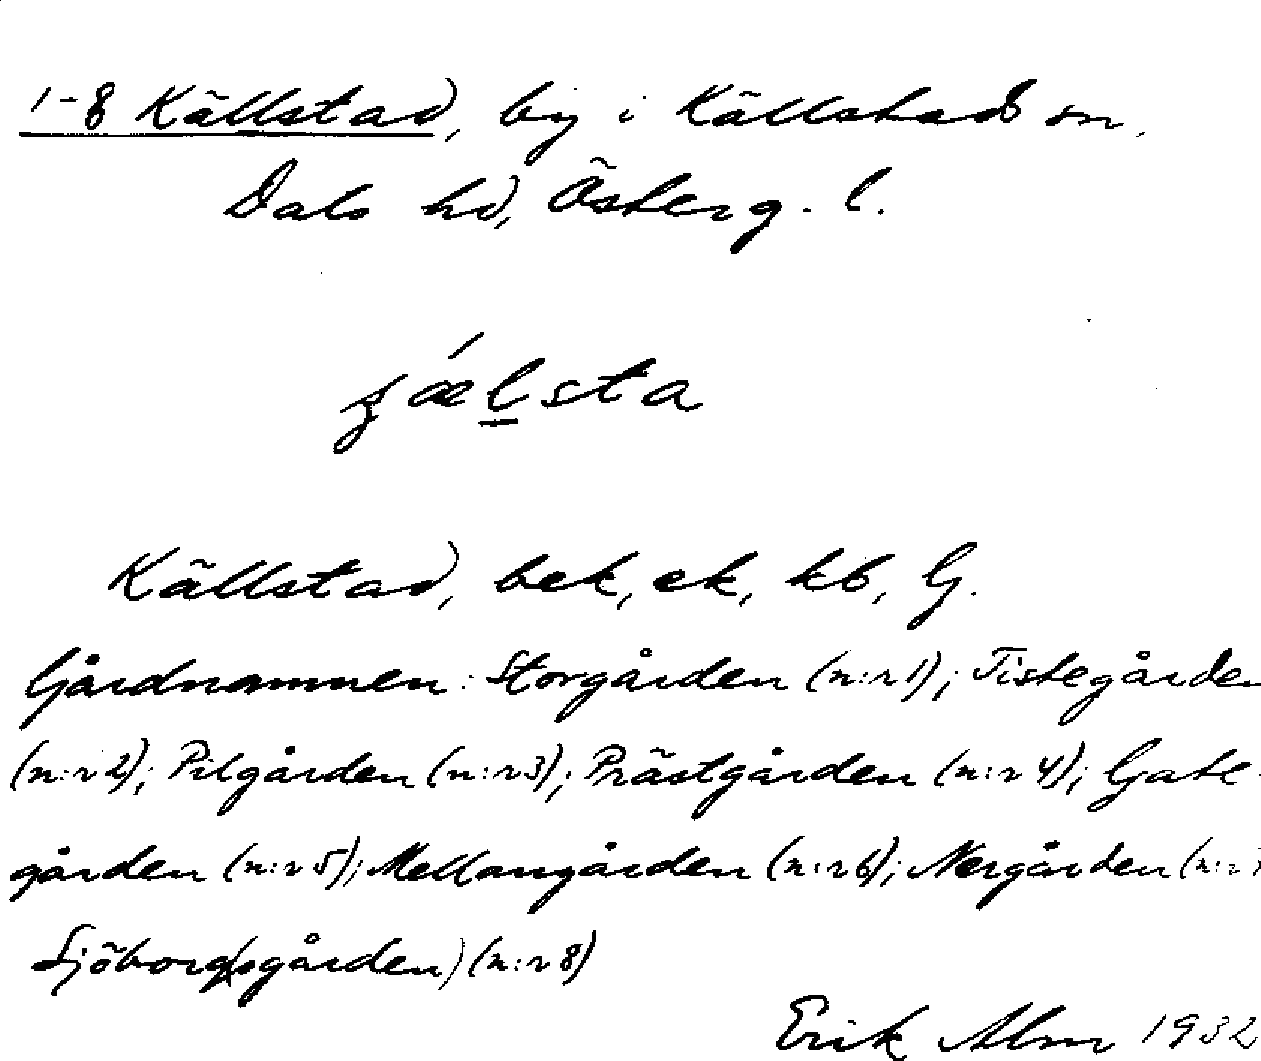 1-8 Källstad, by i Källstad sn.
Dals hd, Österg. l.
ʂǽl̲sta
Källstad, bek, ek, kb, G.
Gårdnamnen: Storgården (n:r 1); Tistegården
(n:r 2); Pilgården (n:r 3); Prästgården (n:r 4); Gate-
gården (n:r 5); Mellangården (n:r 6); Nergården (n:r
Sjöborg(sgården) (n:r 8)
Erik Alm 1932